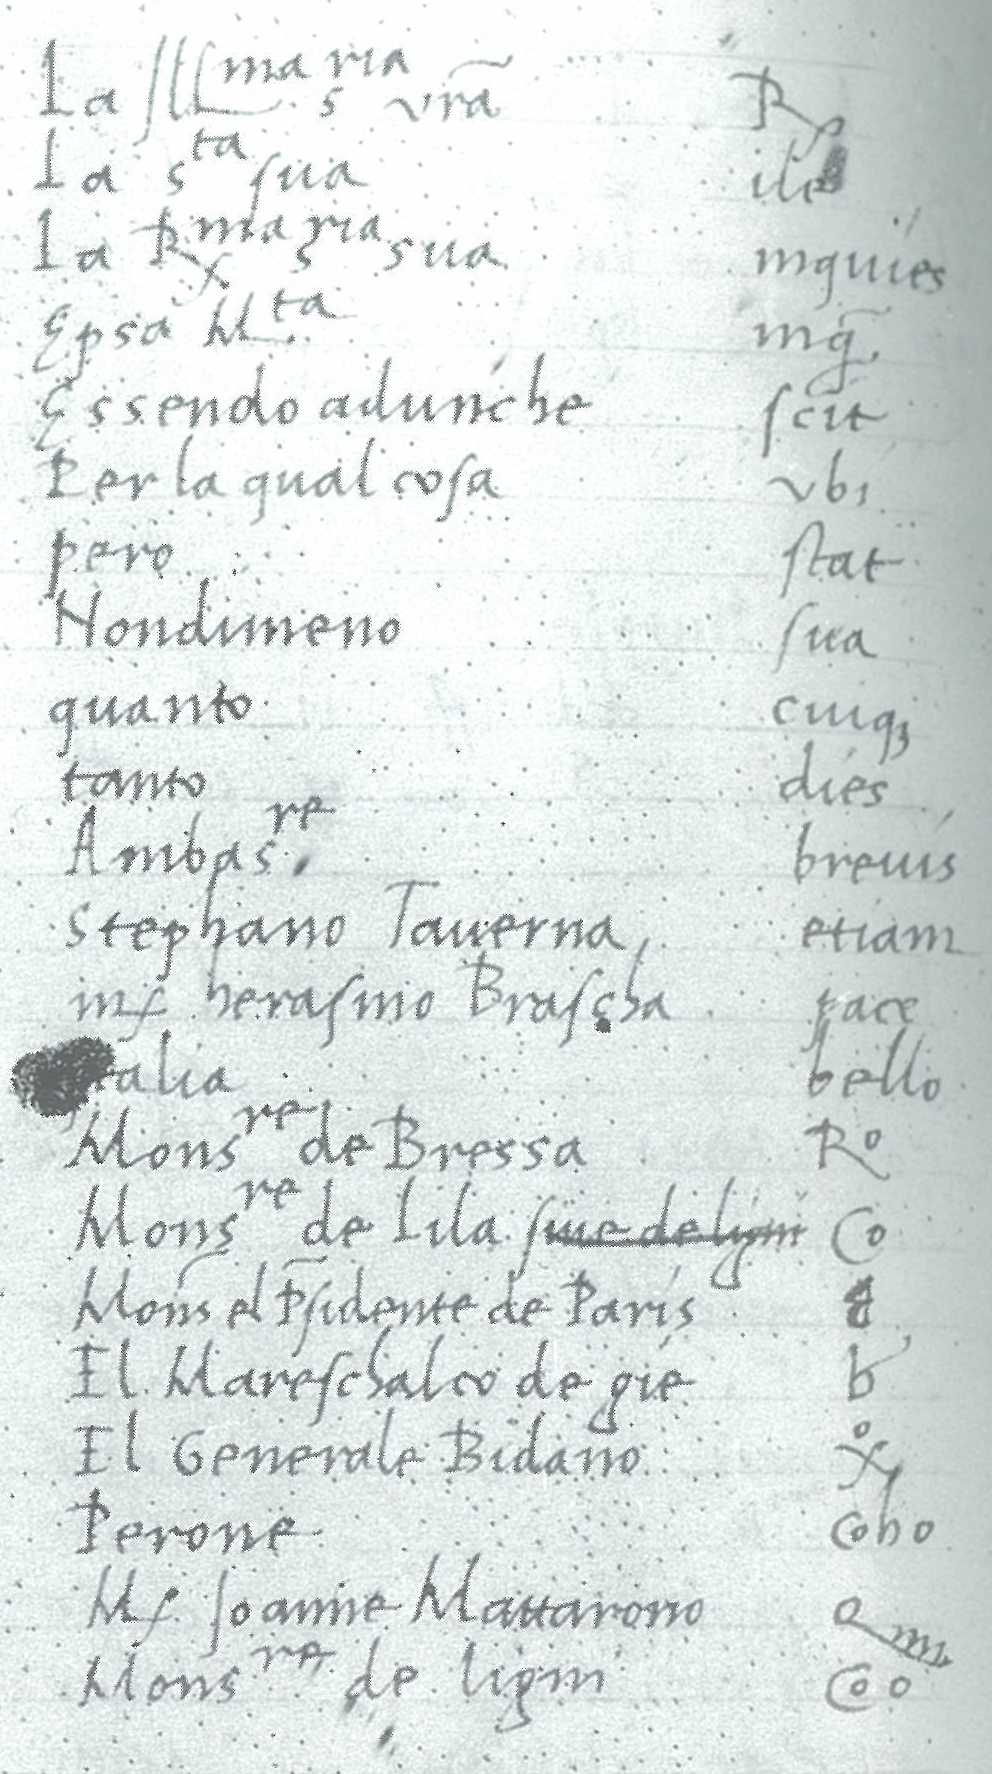 La Ill^ma S^ria vr̄a R
La S^ta sua ile
La R^ma S^ria sua mquies
Epsa M^ta mq̄
Essendo adunche scit
Per la qual cosa vbi
pero stat
Nondimeno sua
quanto cuiqꝫ
tanto dies
Ambas^re breuis
Stephano Tauerna etiam
mſ herasmo Brascha face
talia bello
Mons^re de Bressa R^o
Mons^re de Lila Co
Mons̄ el P̄sidente de Paris
El Mareschalco de gie b
El Generale Bidano
Perone Coho
Mſ Joanne Mattarono
Mons^re de ligni Coo